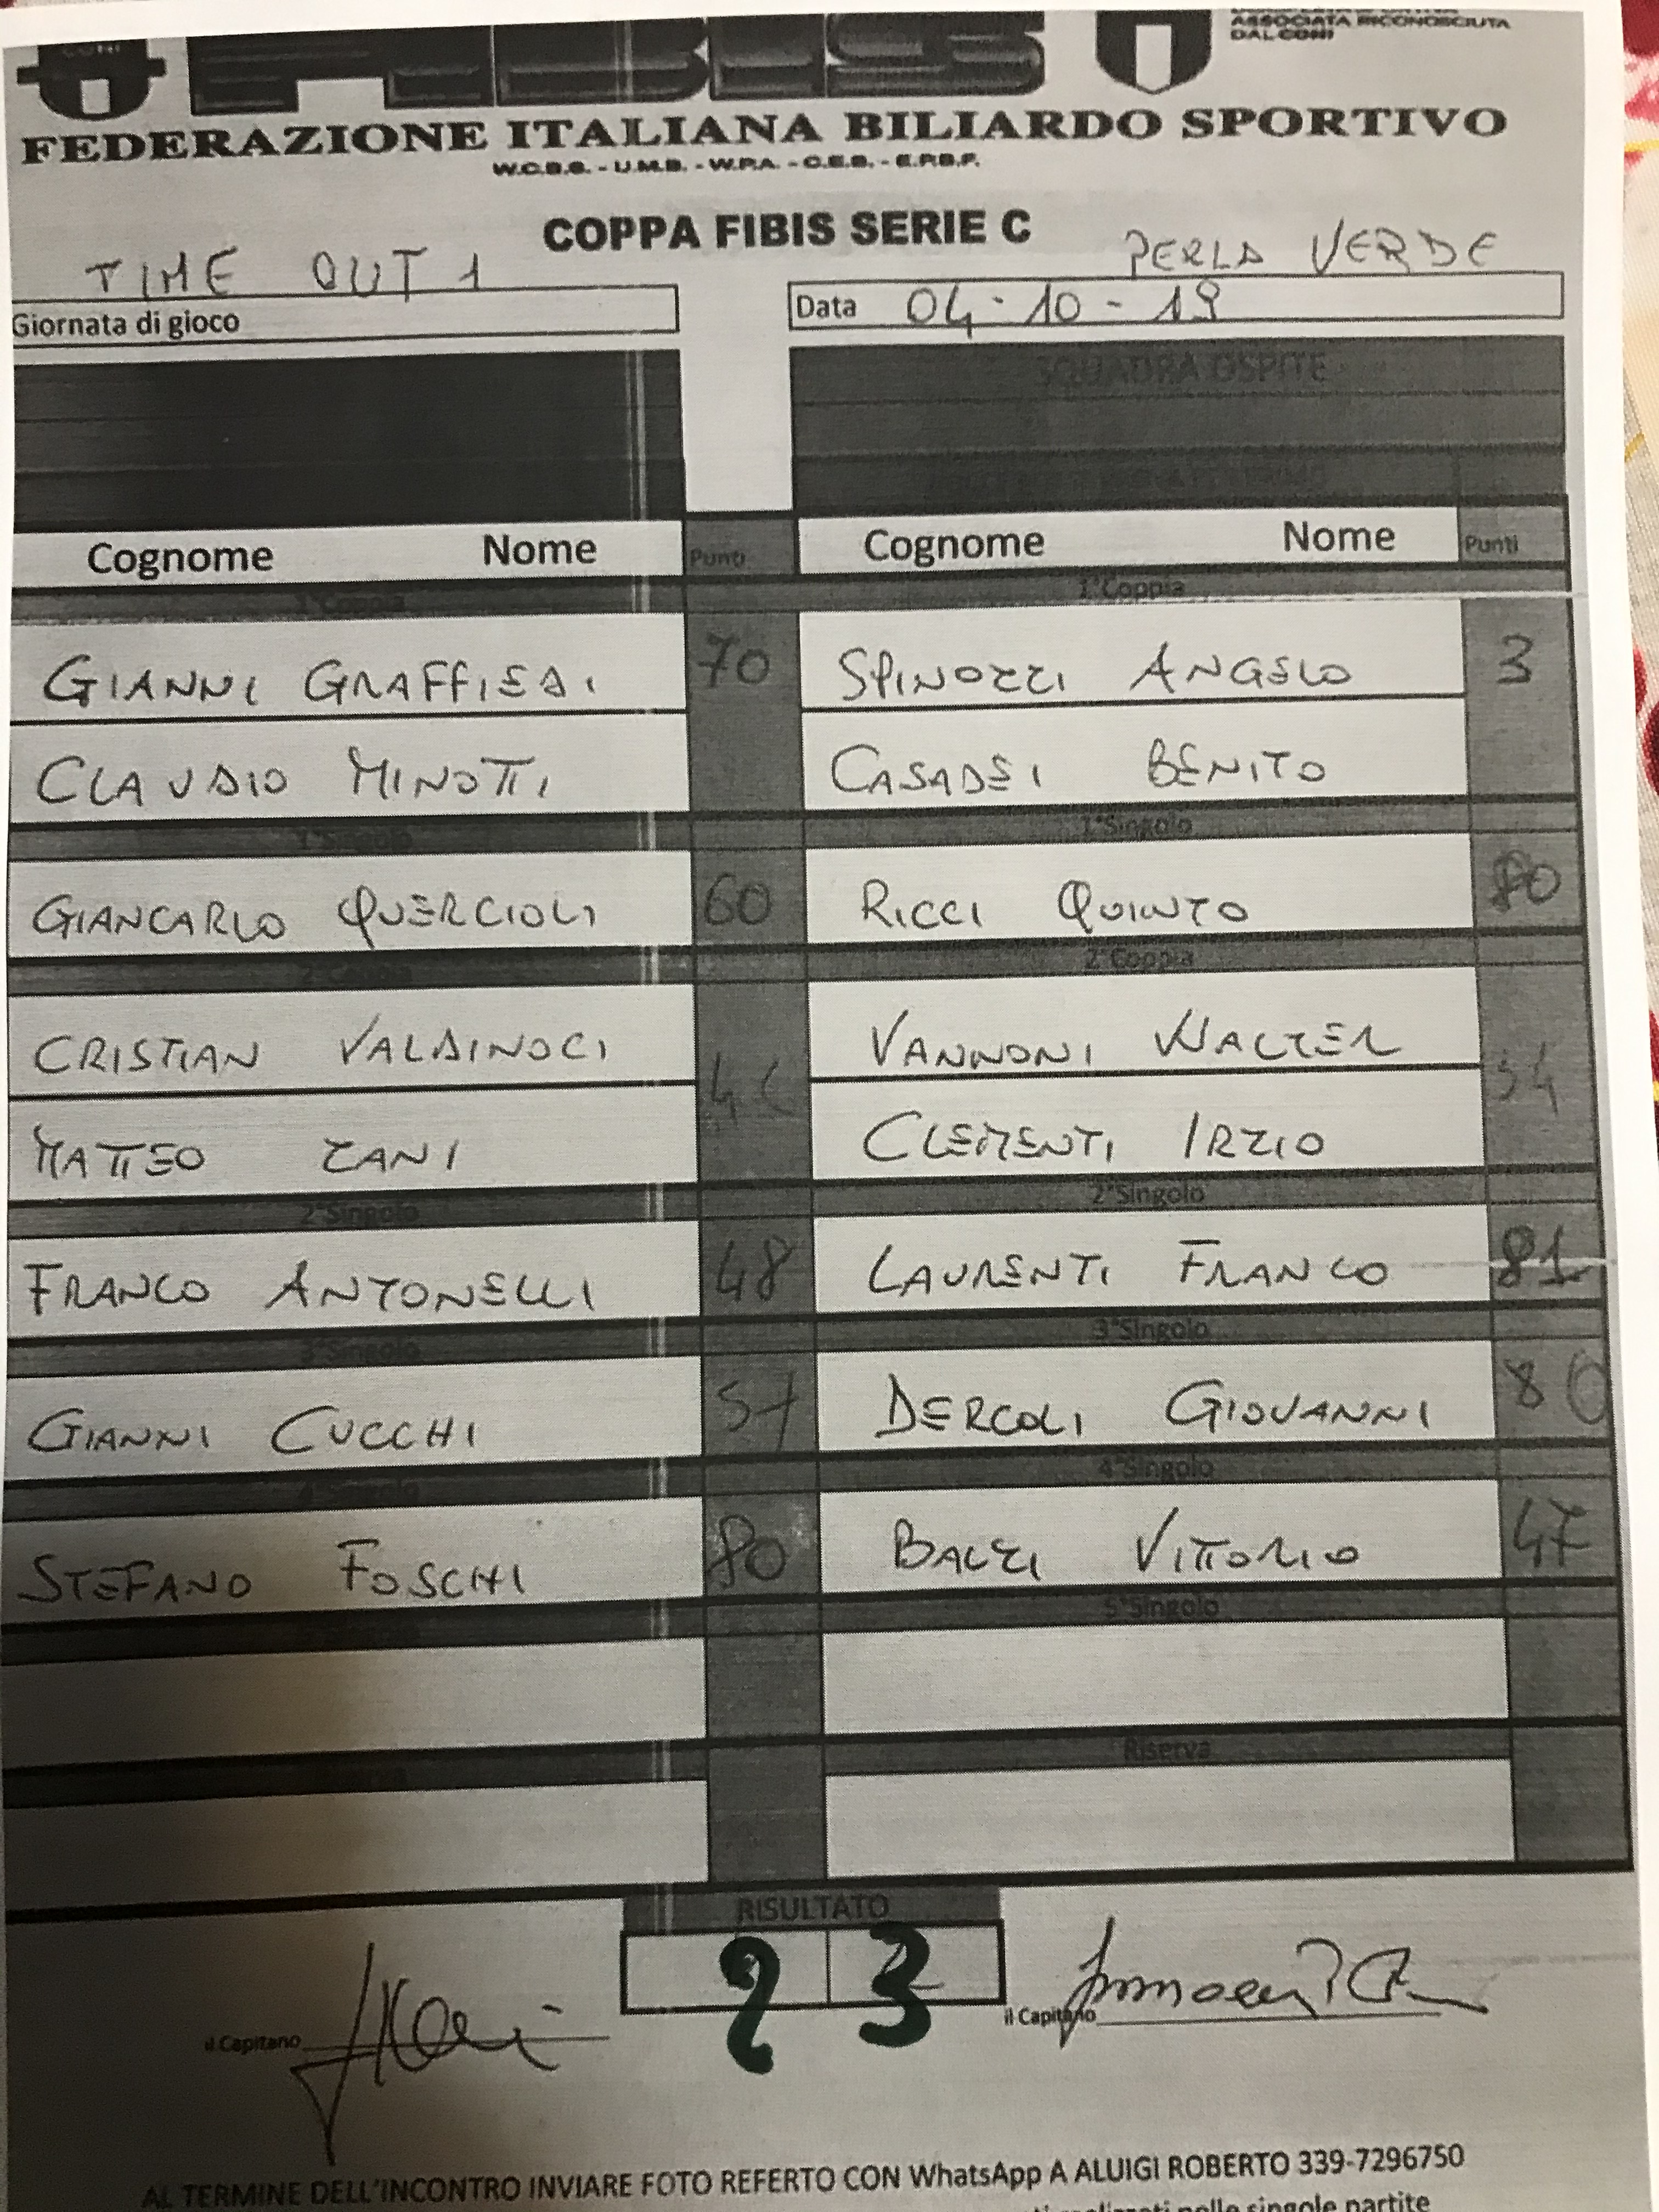 CONI FIBIS ASSOCIATA RICONOSCIUTA
DAL CONI
FEDERAZIONE ITALIANA BILIARDO SPORTIVO
W.C.B.S. - U.M.B. - W.P.A. - C.E.B. - E.P.B.F.
COPPA FIBIS SERIE C
TIME OUT 1 PERLA VERDE
Giornata di gioco Data 04-10-19
SQUADRA OSPITE
Cognome Nome Punti Cognome Nome Punti
1°Coppia 1°Coppia
GIANNI GRAFFIEDI 70 SPINOZZI ANGELO 3
CLAUDIO MINOTTI CASADEI BENITO
1°Singolo 1°Singolo
GIANCARLO QUERCIOLI 60 RICCI QUINTO 80
2°Coppia 2°Coppia
CRISTIAN VALDINOCI VANNONI WALTER
MATTEO ZANI CLEMENTI IRZIO
2°Singolo 2°Singolo
FRANCO ANTONELLI 48 LAURENTI FRANCO 81
3°Singolo 3°Singolo
GIANNI CUCCHI 57 DERCOLI GIOVANNI 80
4°Singolo 4°Singolo
STEFANO FOSCHI 80 BALZI VITTORIO 47
5°Singolo
Riserva
RISULTATO
2 3
il Capitano il Capitano
AL TERMINE DELL'INCONTRO INVIARE FOTO REFERTO CON WhatsApp A ALUIGI ROBERTO 339-7296750
realizzati nelle singole partite